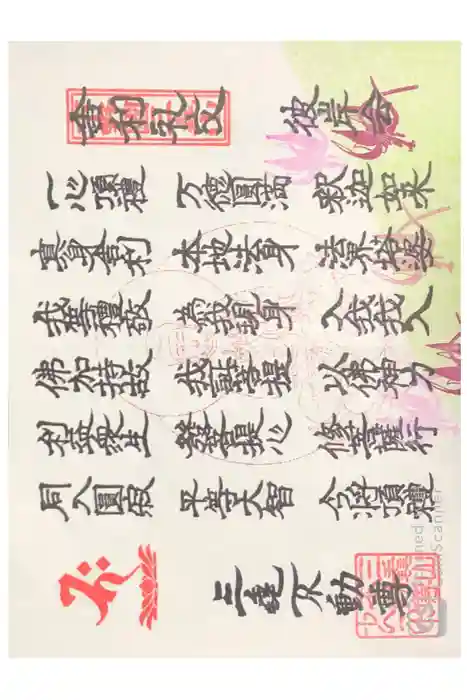 舎利礼文
彼岸会
一心頂禮 万徳圓満 釈迦如来
真身舎利 本地法身 法界塔婆
我等禮敬 為我現身 入我我入
佛加持故 我證菩提 以佛神力
利益衆生 發菩提心 修菩薩行
同入圓寂 平等大智 今将頂禮
不動尊